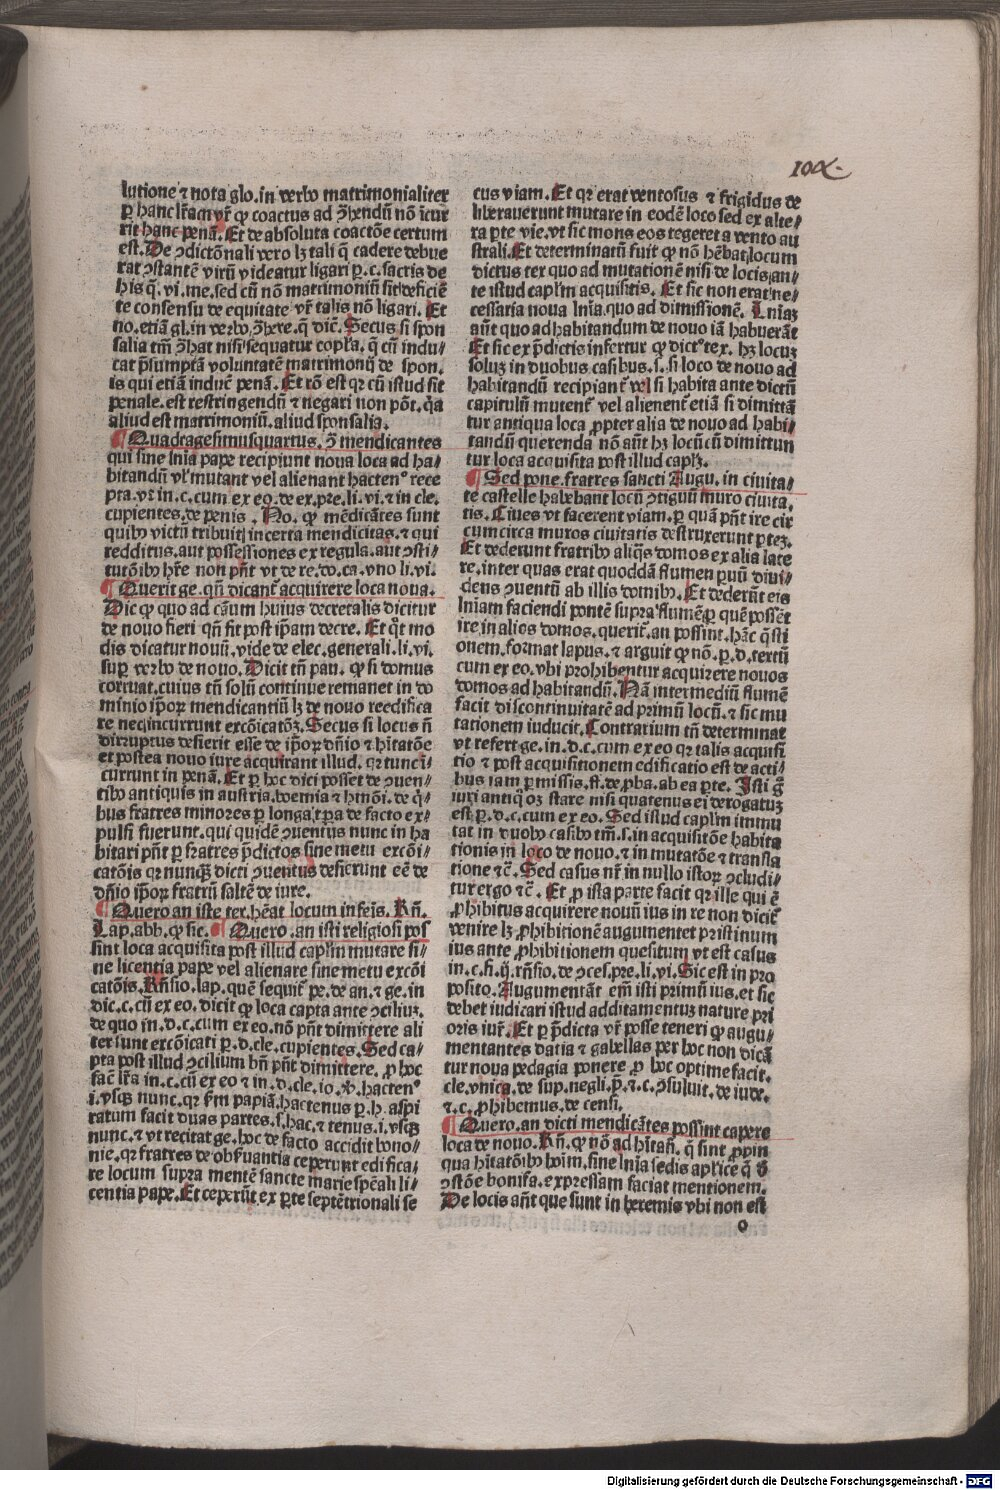 100.
lutione ⁊ nota glo. in verbo matrimonialiter
ꝑ hanc lr̄am vr̄ ꝙ coactus ad ꝯ̄hendū nō īcur
rit hanc penā. Et de absoluta coactōe certum
est. De ꝯdictōnali vero lꝫ tali q̄ cadere debue
rat ꝯstantē virū videatur ligari ꝑ. c. sacris de
his q̄. vi. me. sed cū nō matrimoniū sit deficiē
te consensu de equitate vr̄ talis nō ligari. Et
no. etiā gl. in verbo ꝯ̄here. q̄ dic̄. Secus si spon
salia tm̄ ꝯ̄hat nisi sequatur copl̄a. q̄ cū indu⸗
cat p̄sumptā voluntatē matrimonij de spon.
is qui etiā induc̄ penā. Et rō est qꝛ cū istud sit
penale. est restringendū ⁊ negari non pōt. q̄a
aliud est matrimoniū. aliud sponsalia.
¶ Quadragesimusquartus. ꝯ̄ mendicantes
qui sine lnīa pape recipiunt noua loca ad ha⸗
bitandū vl̄ mutant vel alienant hacten⁹ rece
pta. vt in. c. cum ex eo. de ex. pre. li. vi. ⁊ in cle.
cupientes. de penis. No. ꝙ mēdicātes sunt
quibꝰ victū tribuit incerta mendicitas. ⁊ qui
redditus. aut possessiones ex regula. aut ꝯsti⸗
tutōibꝰ hr̄e non pn̄t vt de re. do. ca. vno li. vi.
¶ Querit ge. qn̄ dicant̄ acquirere loca noua.
Dic ꝙ quo ad cām huius decretalis dicitur
de nouo fieri qn̄ fit post ip̄am decre. Et q̄t mo
dis dicatur nouū. vide de elec. generali. li. vi.
suꝑ verbo de nouo. Dicit tn̄ pau. ꝙ si domus
corruat. cuius tn̄ solū continue remanet in do
minio ip̄oꝝ mendicantiū lꝫ de nouo reedifica
re neq̄ incurrunt excōicatōꝫ. Secus si locus n̄
dirruptus desierit esse de ip̄oꝝ dn̄io ⁊ hītatōe
et postea nouo iure acquirant illud. qꝛ tunc ī⸗
currunt in penā. Et ꝑ hoc dici posset de ꝯuen⸗
tibꝰ antiquis in austria. boemia ⁊ hmōi. de q̄⸗
bus fratres minores ꝑ longa tꝑa de facto ex⸗
pulsi fuerunt. qui quidē ꝯuentus nunc in ha
bitari pn̄t ꝑ fratres p̄dictos sine metu excōi⸗
catōis qꝛ nunqꝫ dicti ꝯuentus desierunt eē de
dn̄io ip̄oꝝ fratrū saltē de iure.
¶ Quero an iste ter. hēat locum in feīs. Rn̄.
Lap. abb. ꝙ sic. ¶ Quero. an isti religiosi pos
sint loca acquisita post illud capl̄m mutare si⸗
ne licentia pape vel alienare sine metu excōi
catōis. Rn̄sio. lap. quē sequit̄ pe. de an. ⁊ ge. in
dic. c. cū ex eo. dicit ꝙ loca capta ante ꝯciliuꝫ.
de quo in. d. c. cum ex eo. nō pn̄t dimittere ali
ter sunt excōicati ꝑ. d. cle. cupientes. Sed ca⸗
pta post illud ꝯcilium bn̄ pn̄t dimittere. ꝓ hoc
fac̄ lr̄a in. c. cū ex eo ⁊ in. d. cle. io. ꝟ. hacten⁹
.i. vsqꝫ nunc. qꝛ ẜm papiā. hactenus ꝑ. h. aspi
ratum facit duas partes. s. hac. ⁊ tenus. i. vsqꝫ
nunc. ⁊ vt recitat ge. hoc de facto accidit bono⸗
nie. qꝛ fratres de obẜuantia ceperunt edifica⸗
re locum supra mentē sancte marie spēali li⸗
centia pape. Et ceperūt ex ꝑte septētrionali se
cus viam. Et qꝛ erat ventosus ⁊ frigidus de
liberauerunt mutare in eodē loco sed ex alte⸗
ra ꝑte vie. vt sic mons eos tegeret a vento au
strali. Et determinatū fuit ꝙ nō hēbat locum
dictus tex quo ad mutationē nisi de locis an⸗
te istud capl̄m acquisitis. Et sic non erat ne⸗
cessaria noua lnīa. quo ad dimissionē. Lnīaꝫ
aūt quo ad habitandum de nouo iā habuerāt
Et sic ex p̄dictis infertur ꝙ dict⁹ tex. hꝫ locuꝫ
soluꝫ in duobus casibus. s. si loco de nouo ad
habitandū recipiant̄ vel si habita ante dictū
capitulū mutent̄ vel alienent̄ etiā si dimittā
tur antiqua loca ꝓpter alia de nouo ad habi⸗
tandū querenda nō aūt hꝫ locū cū dimittun
tur loca acquisita post illud caplꝫ.
¶ Sed pone. fratres sancti Augu. in ciuita⸗
te castelle habebant locū ꝯtiguū muro ciuita.
tis. Ciues vt facerent viam. ꝑ quā pn̄t ire cir
cum circa muros ciuitatis destruxerunt ꝑteꝫ.
Et dederunt fratribꝰ aliq̄s domos ex alia late
re. inter quas erat quoddā flumen ꝑuū diui⸗
dens ꝯuentū ab illis domibꝰ. Et dederūt eis
lnīam faciendi pontē supra flumē ꝑ quē possēt
ire in alios domos. querit̄. an possint. hāc q̄sti
onem. format lapus. ⁊ arguit ꝙ nō. ꝑ. d. textū
cum ex eo. vbi prohibentur acquirere nouos
domos ad habitandū. Nā intermediū flumē
facit discontinuitatē ad primū locū. ⁊ sic mu
tationem iuducit. Contrarium tn̄ determinat
vt refert ge. in. d. c. cum ex eo qꝛ talis acquisi
tio ⁊ post acquisitionem edificatio est de acti⸗
bus iam permissis. ff. de ꝓba. ab ea ꝑte. Isti g̅
iuri antiq̄ oꝫ stare nisi quatenus ei derogatuꝫ
est ꝑ. d. c. cum ex eo. Sed istud capl̄m immu
tat in duobꝰ casibꝰ tm̄. s. in acquisitōe habita
tionis in loco de nouo. ⁊ in mutatōe ⁊ transla
tione ⁊c̄. Sed casus nr̄ in nullo istoꝝ ꝯcludi⸗
tur ergo ⁊c̄. Et ꝓ ista parte facit qꝛ ille qui ē
ꝓhibitus acquirere nouū ius in re non dicit̄
venire lꝫ ꝓhibitionē augumentet pristinum
ius ante ꝓhibitionem quesitum vt est casus
in. c. fi. q̄. rn̄sio. de ꝯces. pre. li. vi. Sic est in pro
posito. Augumentāt em̄ isti primū ius. et sic
debet iudicari istud additamentuꝫ nature pri
oris iur̄. Et ꝑ p̄dicta vr̄ posse teneri ꝙ augu⸗
mentantes datia ⁊ gabellas per hoc non dicā
tur noua pedagia ponere ꝓ hoc optime facit.
cle. vnica. de sup. negli. p̄. ⁊. c. ꝯsuluit. de iude.
⁊. c. ꝓhibemus. de censi.
¶ Quero. an dicti mendicātes possint capere
loca de nouo. Rn̄. ꝙ nō ad hītan̄. q̄ sint ꝓpin
qua hītatōibꝰ hoīm. sine lnīa sedis aplice q̄ d̄
ꝯstōe bonifa. expressam faciat mentionem.
De locis aūt que sunt in heremis vbi non est
o
Digitalisierung gefördert durch die Deutsche Forschungsgemeinschaft - DFG